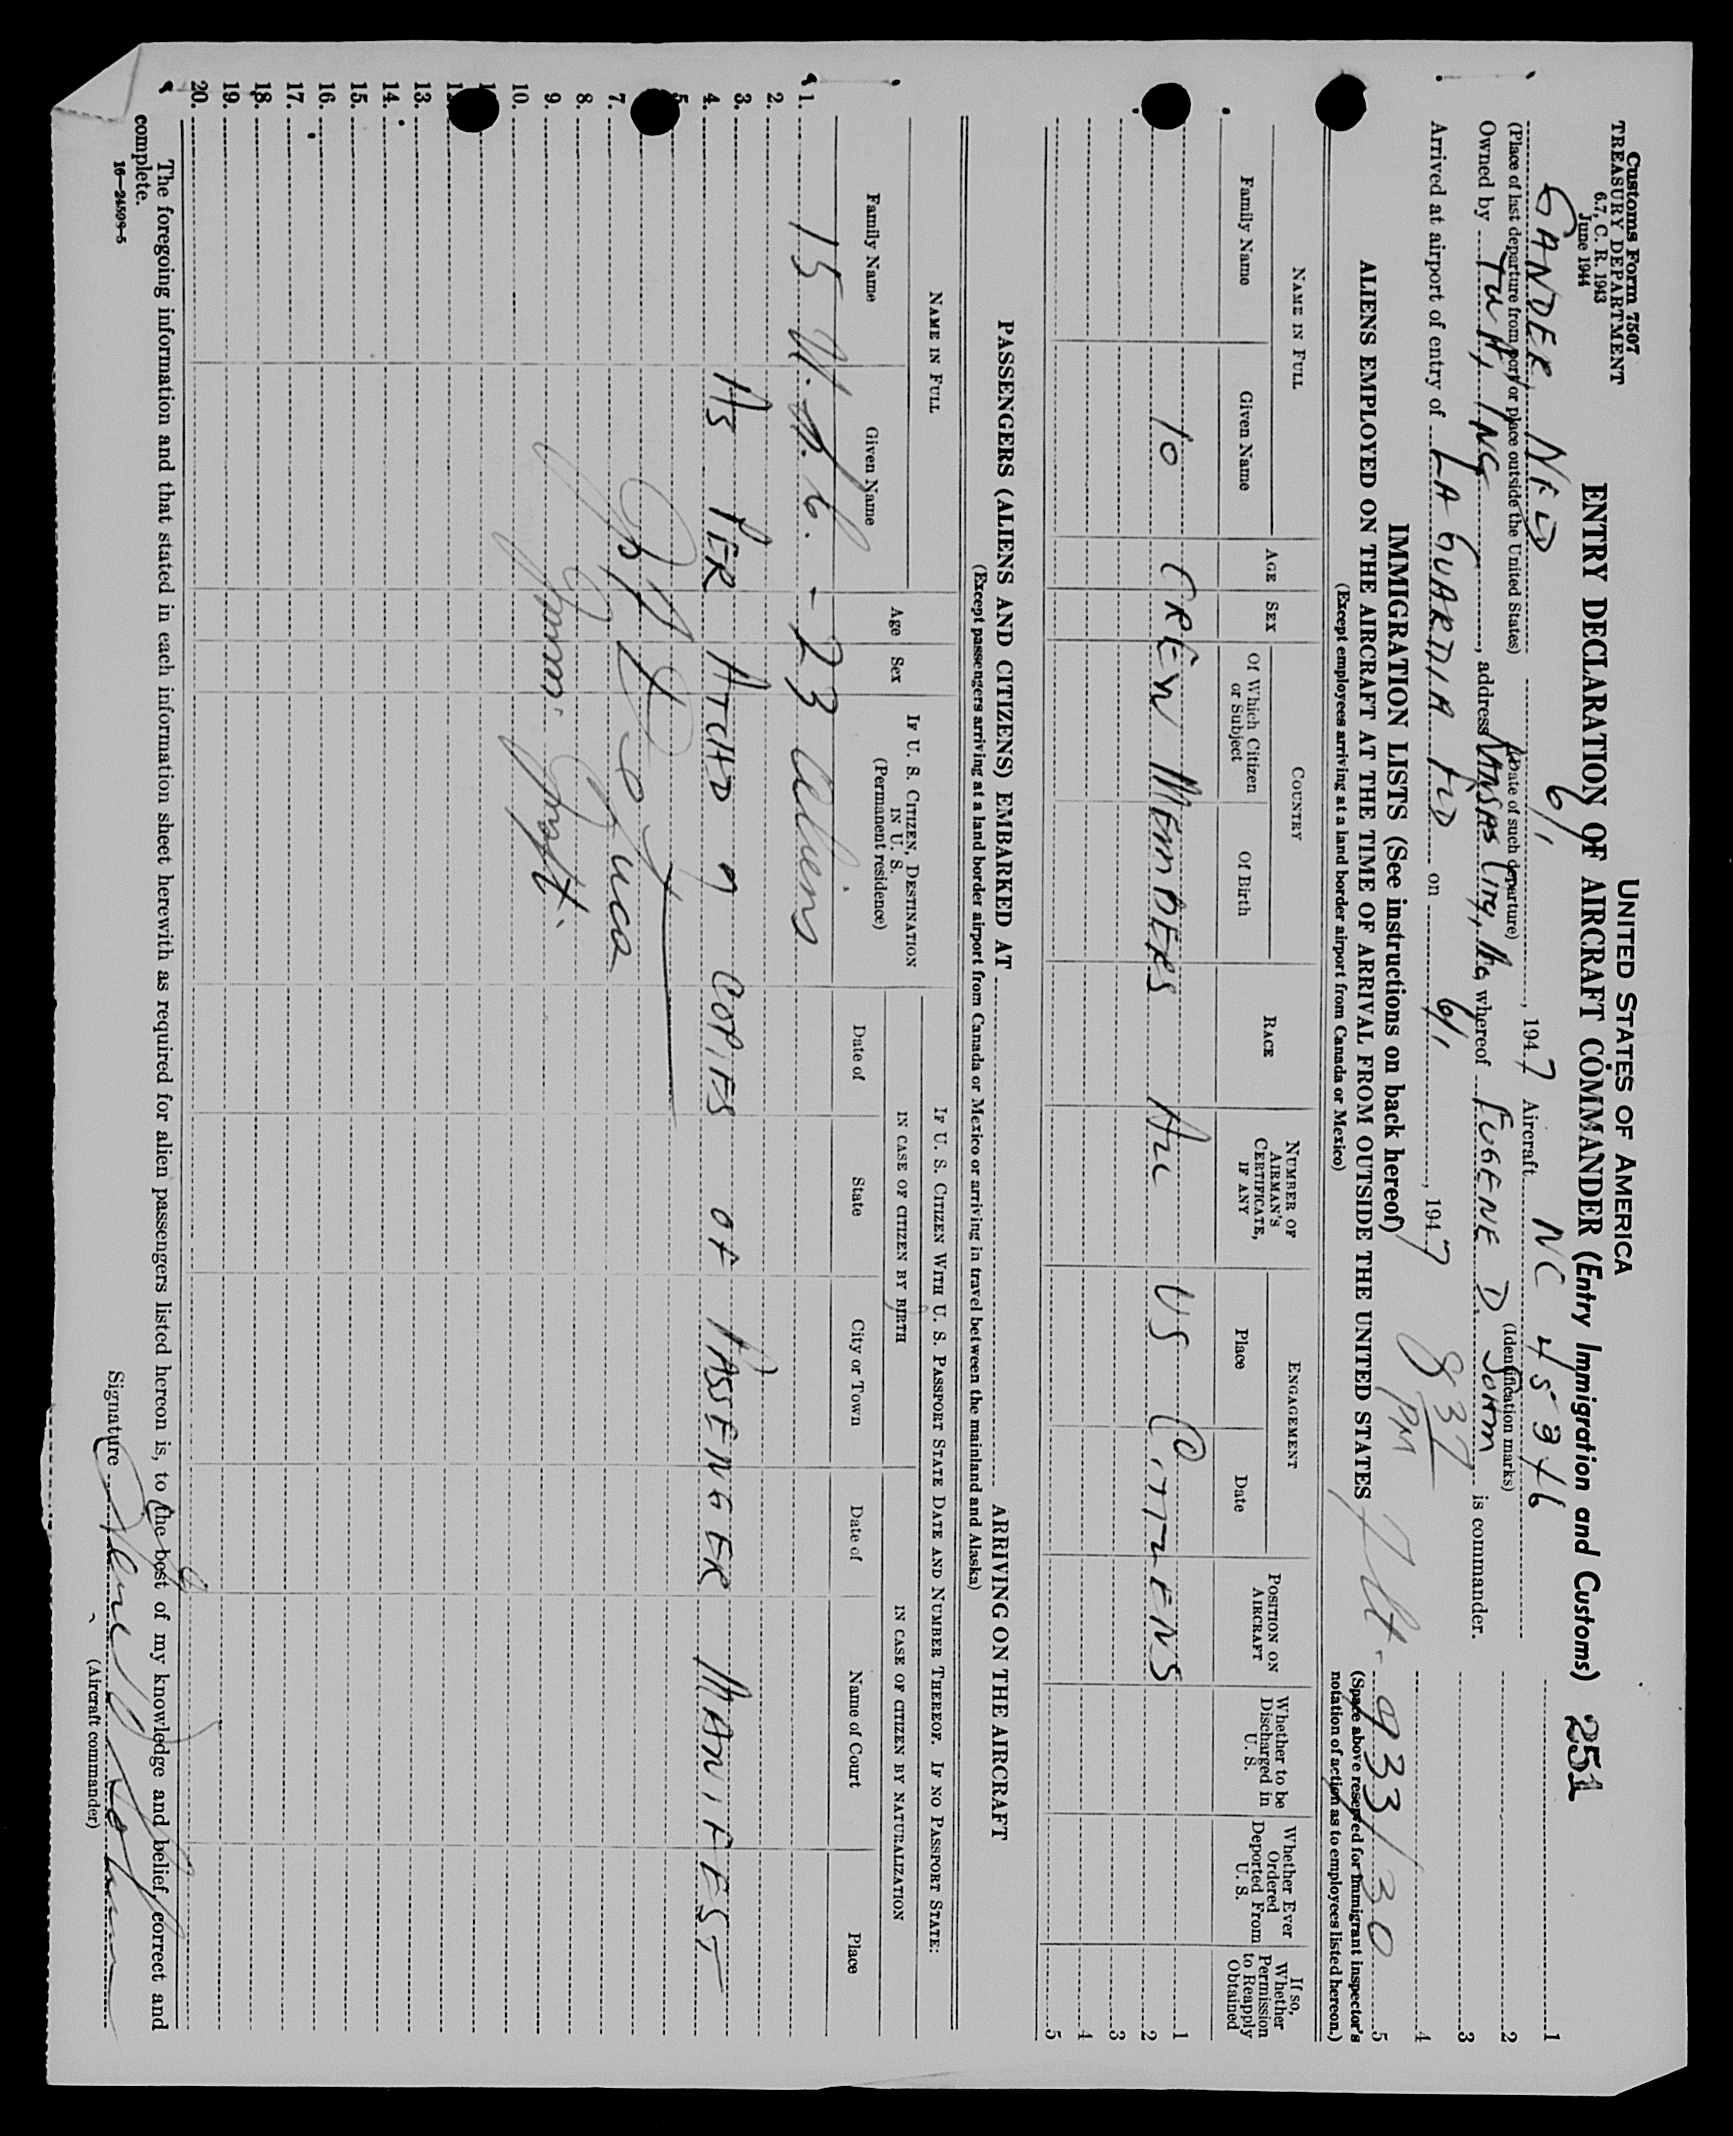 Customs Form 7507
TREASURY DEPARTMENT
6.7, C. R. 1943
June 1944
UNITED STATES OF AMERICA
ENTRY DECLARATION OF AIRCRAFT COMMANDER (Entry Immigration and Customs) 251
GANDER NFLD 6/1, 1947 Aircraft NC 45346
(Place of last departure from port or place outside the United States) (Date of such departure) (Identification marks)
Owned by TWA, INC, address KANSAS CITY, whereof EUGENE D. SOHM is commander.
Arrived at airport of entry of LA GUARDIA FLD on 6/1, 1947 8 37 PM
IMMIGRATION LISTS (See instructions on back hereof)
Flt. 933/30
1
2
3
4
5
(Space above reserved for immigrant inspector's notation of action as to employees listed hereon.)
ALIENS EMPLOYED ON THE AIRCRAFT AT THE TIME OF ARRIVAL FROM OUTSIDE THE UNITED STATES
(Except employees arriving at a land border airport from Canada or Mexico)
NAME IN FULL
Family Name
Given Name
AGE
SEX
COUNTRY
Of Which Citizen or Subject
Of Birth
RACE
NUMBER OF AIRMAN'S CERTIFICATE, IF ANY
ENGAGEMENT
Place
Date
POSITION ON AIRCRAFT
Whether to be Discharged in U. S.
Whether Ever Ordered Deported From U. S.
If so, Whether Permission to Reapply Obtained
10 CREW MEMBERS ALL US CITIZENS
1
2
3
4
5
PASSENGERS (ALIENS AND CITIZENS) EMBARKED AT ARRIVING ON THE AIRCRAFT
(Except passengers arriving at a land border airport from Canada or Mexico or arriving in travel between the mainland and Alaska)
NAME IN FULL
Family Name
Given Name
Age
Sex
IF U. S. CITIZEN, DESTINATION IN U. S.
(Permanent residence)
IF U. S. CITIZEN WITH U. S. PASSPORT STATE DATE AND NUMBER THEREOF. IF NO PASSPORT STATE:
IN CASE OF CITIZEN BY BIRTH
Date of
State
City or Town
IN CASE OF CITIZEN BY NATURALIZATION
Date of
Name of Court
Place
1. 15 - 23 Aliens
2.
3.
4. AS PER ATCHD 9 COPIES OF PASSENGER MANIFEST
5.
7.
8.
9.
10.
13.
14.
15.
16.
17.
18.
19.
20.
The foregoing information and that stated in each information sheet herewith as required for alien passengers listed hereon is, to the best of my knowledge and belief, correct and complete.
16—24599-5
Signature
(Aircraft commander)